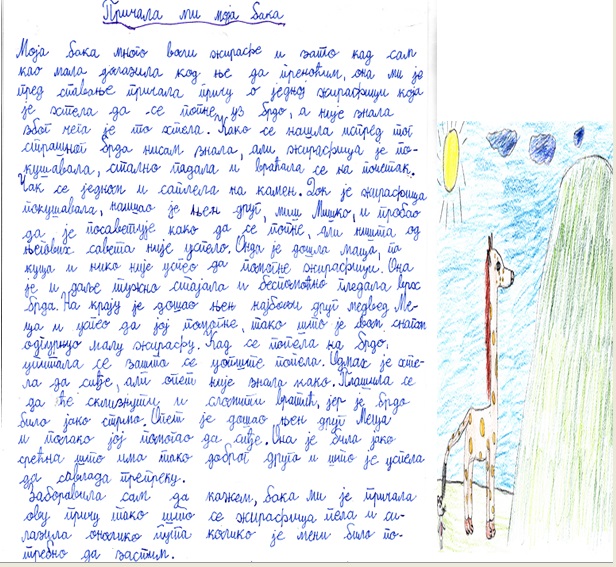 Причала ми моја бака
Моја бака много воли жирафе и зато кад сам
као мала долазила код ње да преноћим, она ми је
пред спавање причала причу о једној жирафици која
је хтела да се попне уз брдо, а није знала
због чега је то хтела. Како се нашла испред тог
страшног брда нисам знала, али жирафица је по-
кушавала, стално падала и враћала се на почетак.
Чак се једном и саплела на камен. Док је жирафица
покушавала, наишао је њен друг, миш Мишко, и пробао
да је посаветује како да се попне, али ништа од
његових савета није успело. Онда је дошла маца, па
куца и нико није успео да помогне жирафици. Она
је и даље тужно стајала и беспомоћно гледала врх
брда. На крају је дошао њен најбољи друг медвед Ме-
ца и успео да јој помогне, тако што је свом снагом
одгурнуо малу жирафу. Кад се попела на брдо,
упитала се зашто се уопште попела. Одмах је хте-
ла да сиђе, али опет није знала како. Плашила се
да ће склизнути и сломити вратић, јер је брдо
било јако стрмо. Опет је дошао њен друг Меца
и полако јој помогао да сиђе. Она је била јако
срећна што има тако доброг друга и што је успела
да савлада препреку.
Заборавила сам да кажем, бака ми је причала
ову причу тако што се жирафица пела и си-
лазила онолико пута колико је мени било по-
требно да заспим.